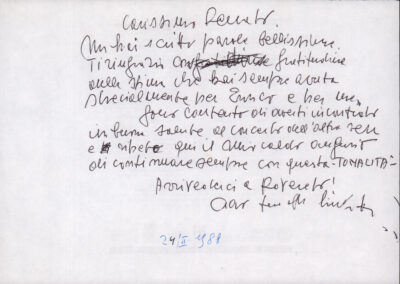 Carissimo Renato.
Mi hai scritto parole bellissime.
Ti ringrazio con gratitudine
della stima che hai sempre avuta
specialmente per Enrico e per me.
Sono contento di averti incontrato
in buona salute, al concerto dell'altra sera
e ripeto qui il mio caldo augurio
di continuare sempre con questa "TONALITÀ"
Arrivederci a Rovereto!
24/II 1988